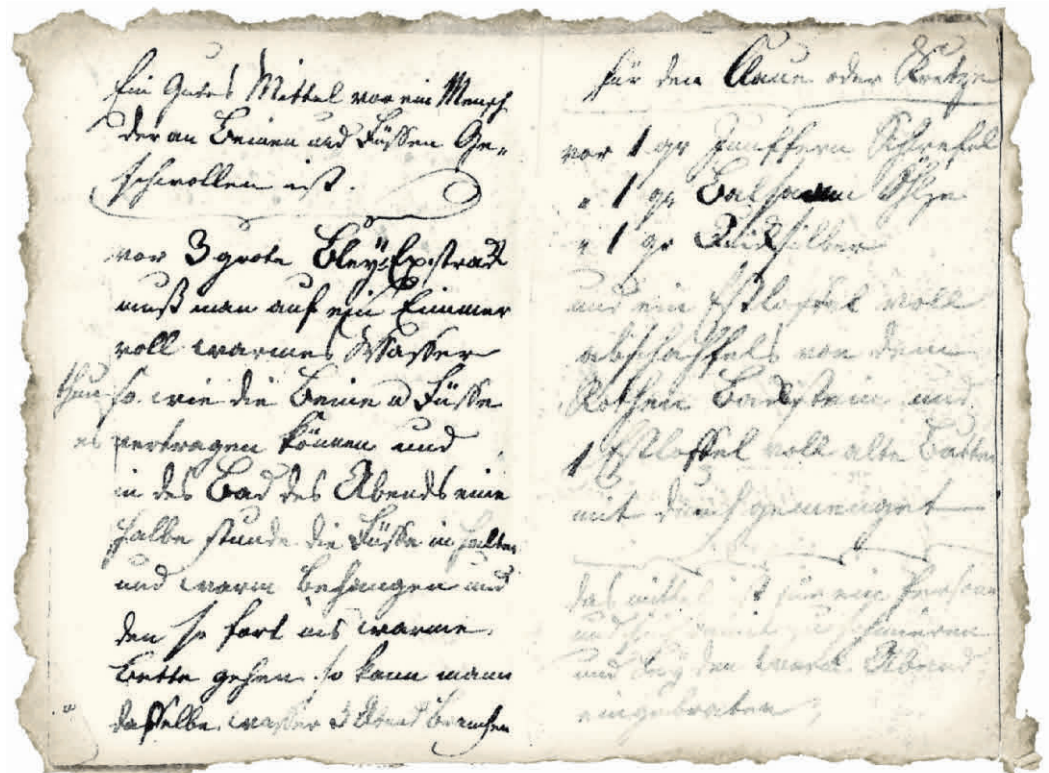 Ein Gutes Mittel vor ein Mensch
der an Beinen und Füssen Ge-
schwollen ist.
vor 3 grote Bley Exstrackt
muß man auf ein Eimmer
voll warmes Wasser
thun so wie die Beine u Füsse
es vertragen können und
in das Bad des Abends eine
halbe stunde die Füsse in halten
und warm behangen und
den so fort ins warme
Bette gehen so kann mann
dasselbe wasser 3 Abend brauchen
für den oder Kretze
vor 1 gr Schwefel
" 1 gr Balsam
" 1 gr Quicksilber
und ein Eßloffel voll
abschaffels von dem
Rothen Backstein und
1 Eßloffel voll alte Butter
mit durch gemenget
das mittel ist für ein Person
und sich damit zu schmieren
und bey den warm Abend
eingebraten